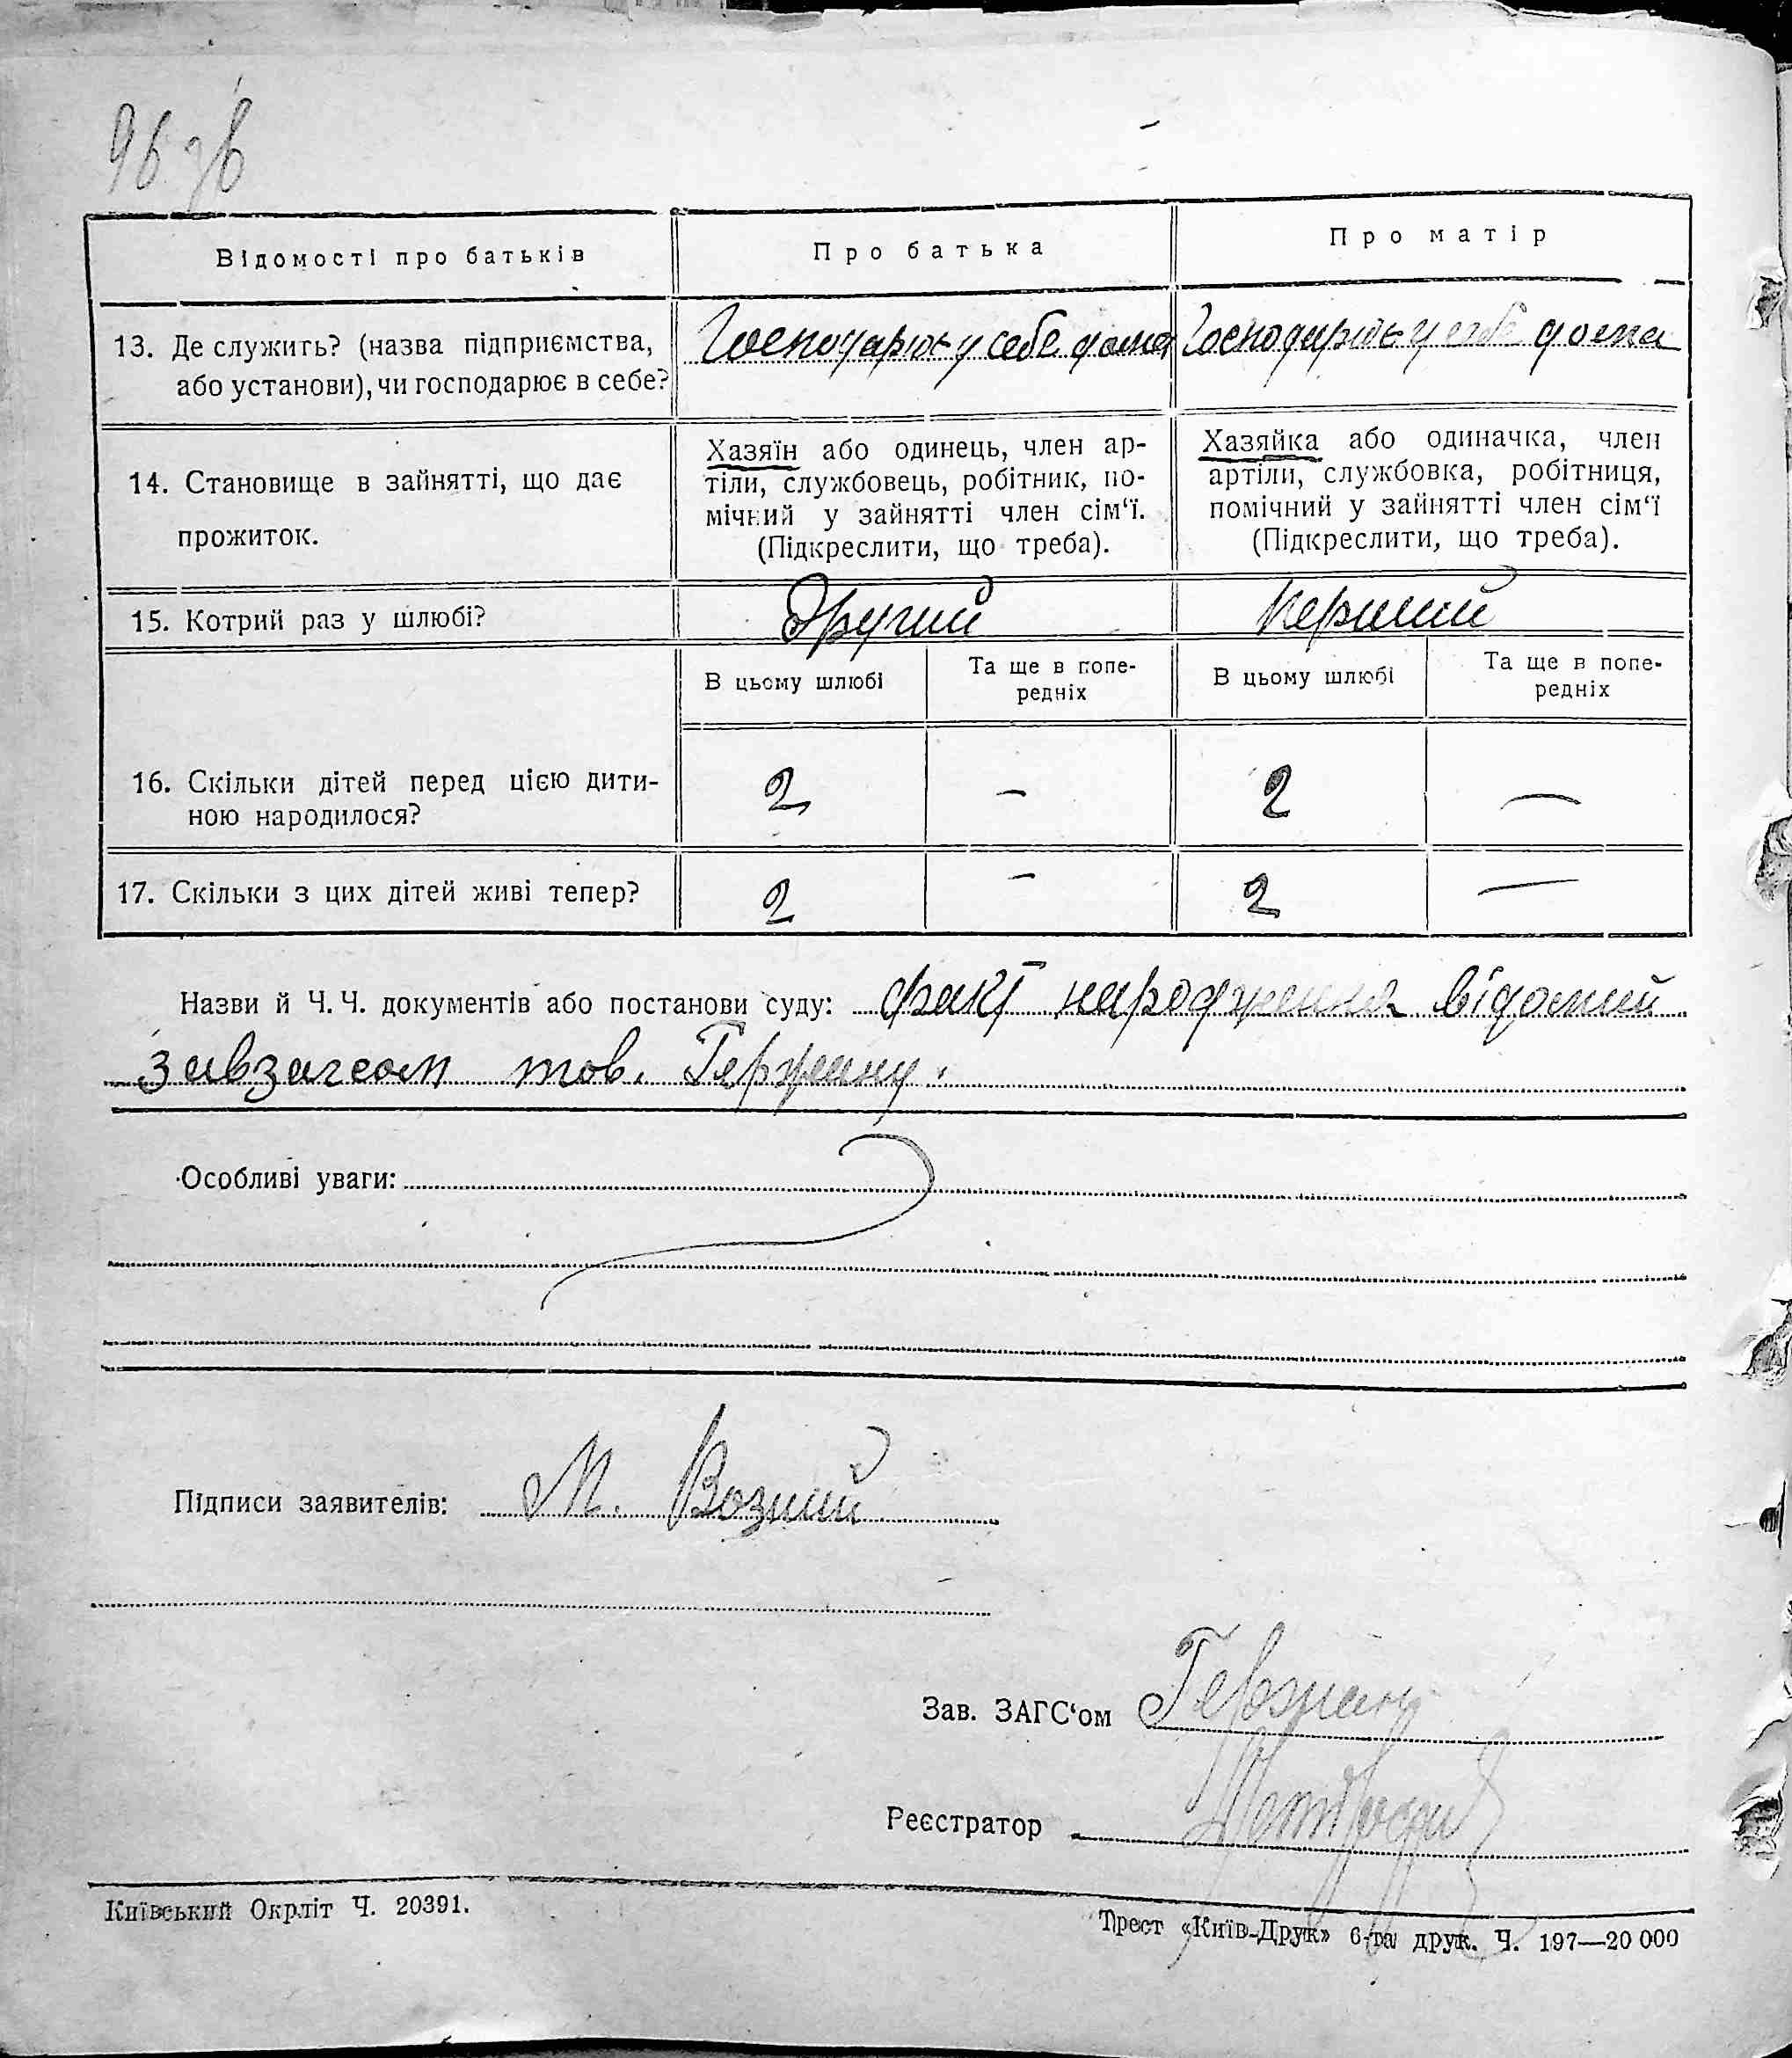 96 зв
Відомості про батьків
Про батька
Про матір
13. Де служить? (назва підприємства,
або установи), чи господарює в себе?
Господарює у себе дома
Господарює у себе дома
14. Становище в зайнятті, що дає
прожиток.
Хазяїн або одинець, член ар-
тіли, службовець, робітник, по-
мічний у зайнятті член сім‘ї.
(Підкреслити, що треба).
Хазяйка або одиначка, член
артіли, службовка, робітниця,
помічний у зайнятті член сім‘ї
(Підкреслити, що треба).
15. Котрий раз у шлюбі?
Другий
Перший
В цьому шлюбі
Та ще в попе-
редніх
В цьому шлюбі
Та ще в попе-
редніх
16. Скільки дітей перед цією дити-
ною народилося?
2 — 2 —
17. Скільки з цих дітей живі тепер?
2 — 2 —
Назви й Ч. Ч. документів або постанови суду: факт народження відомий
завзагсом тов. Гержану.
Особливі уваги:
Підписи заявителів: М. Возний
Зав. ЗАГС‘ом Гержан
Реєстратор
Київський Окрліт Ч. 20391.
Трест «Київ-Друк» 6-та друк. Ч. 197—20 000